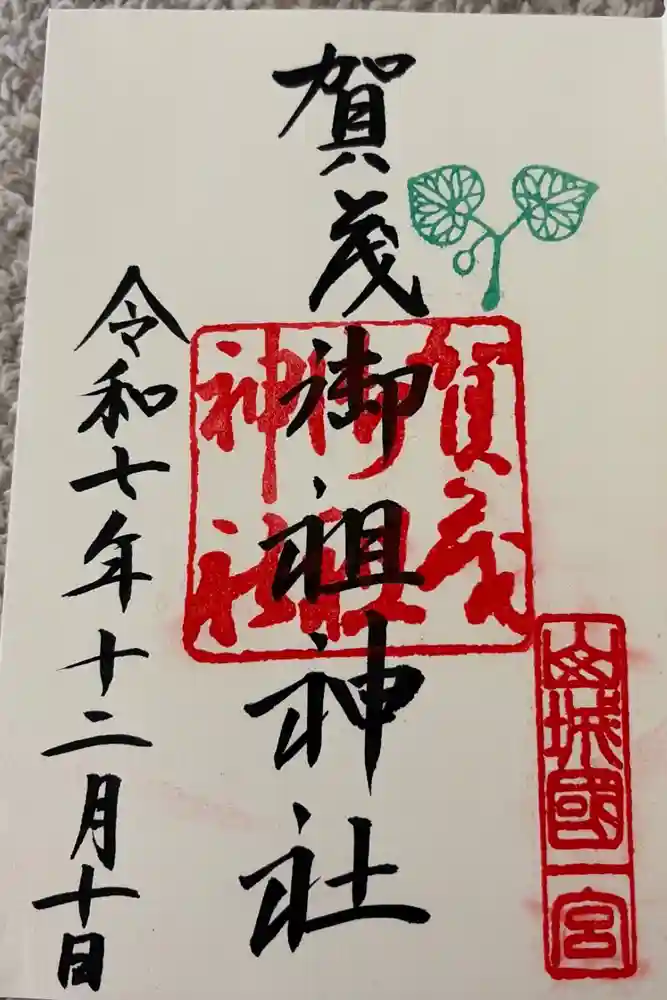 山城國一宮
賀茂御祖神社
賀茂御祖神社
令和七年十二月十日